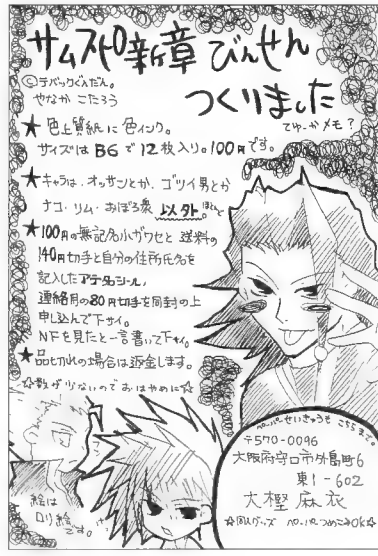 サムスピ新章びんせん
つくりました
©デバックぐんだん。
やなか こたろう
てゆーかメモ?
★色上質紙に色インク。
サイズはB6で12枚入り。100円です。
★キャラは、オッサンとか、ゴツイ男とか
ナコ・リム・おぼろ衆以外。ほとんど
★100円の無記名小ガワセと送料の
140円切手と自分の住所氏名を
記入したアテ名シール、
連絡用の80円切手を同封の上
申し込んで下サイ。
NFを見たと一言書いて下サイ。
★品切れの場合は返金します。
☆数が少ないのでおはやめに☆
絵は
ロリ絵
です。
ペーパーせいきゅうも こちらまで。
〒570-0096
大阪府守口市外島町6
東1-602
大樫 麻衣
☆同人グッズ ペーパーつめこみOK☆